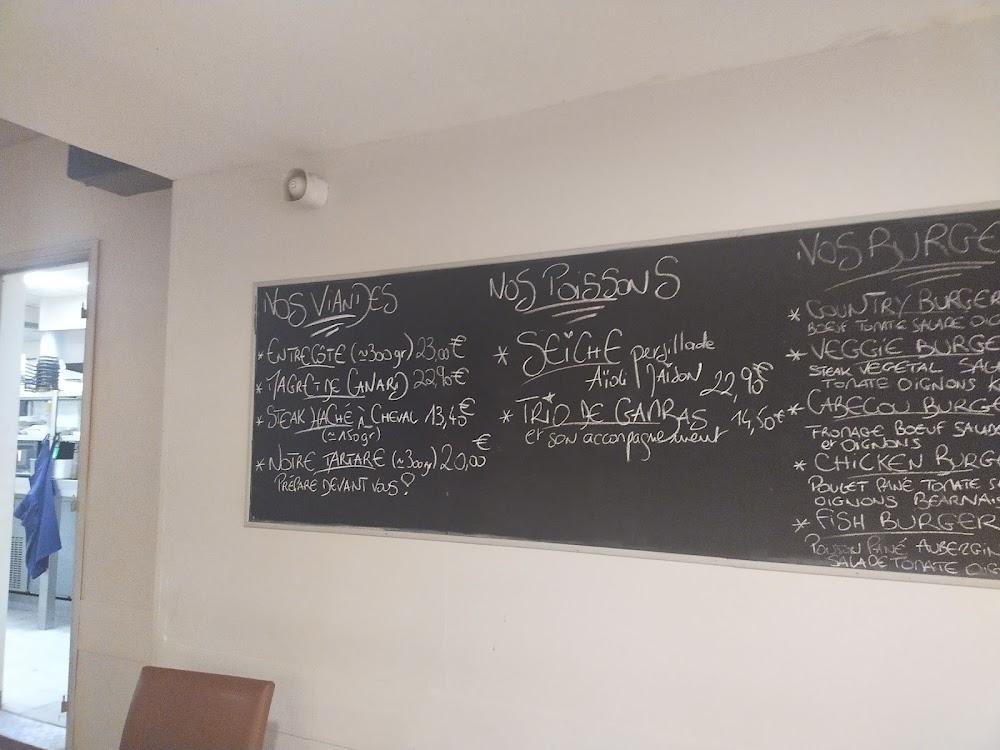 NOS VIANDES
* ENTRECÔTE (≈300gr) 23,00€
* MAGRET DE CANARD 22,90€
* STEAK HACHÉ À CHEVAL 13,45€
(≈150gr)
* NOTRE TARTARE (≈300gr) 20,00€
PRÉPARÉ DEVANT VOUS!
NOS POISSONS
* SEICHE persillade
Aïoli Maison 22,90€
* TRIO DE GAMBAS 14,50€
et son accompagnement
NOS BURGE
* COUNTRY BURGER
BOEUF TOMATE SALADE OIG
* VEGGIE BURGE
STEAK VEGETAL SAL
TOMATE OIGNONS
* CABECOU BURGE
FROMAGE BOEUF SALAD
et OIGNONS
* CHICKEN BURGE
POULET PANÉ TOMATE S
OIGNONS BEARNAIS
* FISH BURGER
POISSON PANÉ AUBERGIN
SALADE TOMATE OIG